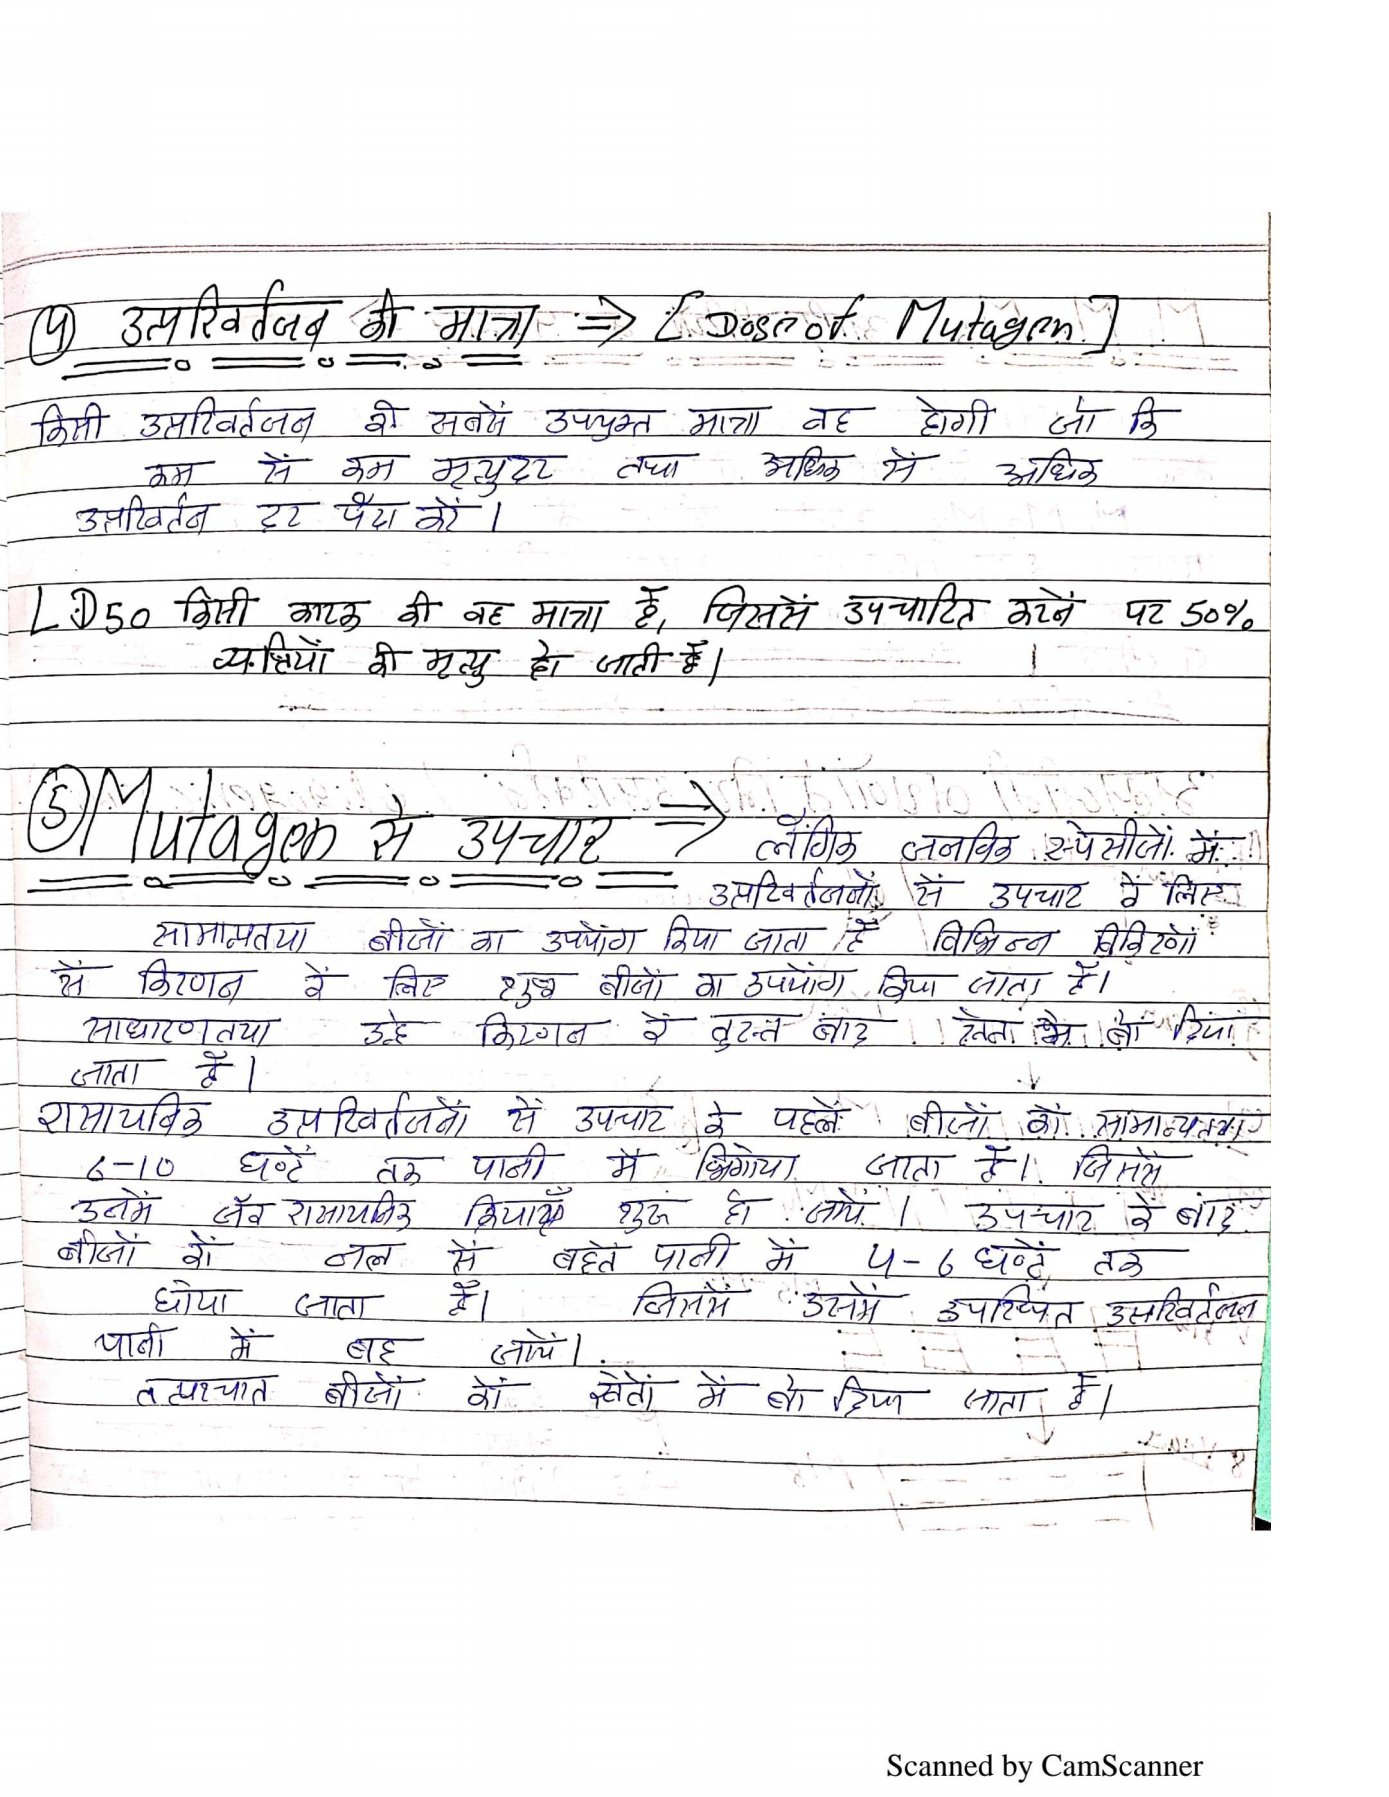 ④ उत्परिवर्तजन की मात्रा ⇒ [Dose of Mutagen]
किसी उत्परिवर्तजन की सबसें उपयुक्त मात्रा वह होगी जो कि
कम सें कम मृत्युदर तथा अधिक सें अधिक
उत्परिवर्तन दर पैदा करें।
LD50 किसी कारक की वह मात्रा हैं, जिससें उपचारित करनें पर 50%
व्यक्तियों की मृत्यु हो जाती हैं।
⑤ Mutagen से उपचार ⇒ लैंगिक जनविक स्पेसीजों में
उत्परिवर्तजनों सें उपचार कें लिए
सामान्यतया बीजों का उपयोग किया जाता हैं विभिन्न विकिरणों
सें किरणन कें लिए शुष्क बीजों का उपयोग किया जाता हैं।
साधारणतया उन्हे किरणन कें तुरन्त बाद खेतों में बो दिया
जाता हैं।
रासायनिक उत्परिवर्तजनों सें उपचार के पहलें बीजों कों सामान्यतया
6-10 घण्टें तक पानी में भिगोया जाता हैं। जिससें
उनमें जैव रासायनिक क्रियाएँ शुरू हो जायें। उपचार के बाद
बीजों कों नल सें बहतें पानी में 4-6 घण्टें तक
धोया जाता हैं। जिससें उसमें उपस्थित उत्परिवर्तजन
पानी में बह जायें।
तत्पश्चात बीजों कों खेतों में बो दिया जाता हैं।
Scanned by CamScanner